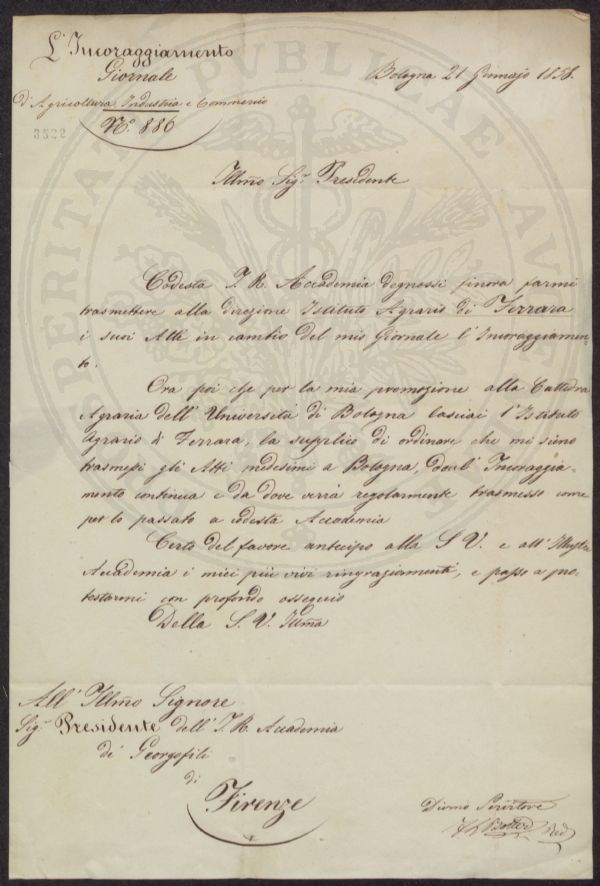 L'Incoraggiamento
Giornale
d'Agricoltura Industria e Commercio
N.º 886
3522
Bologna 21 Gennajo 1858.
PUBLICAE
PROSPERITATI
AU
Illmo Sigr. Presidente
Codesta I. R. Accademia degnossi finora farmi
trasmettere alla direzione Istituto Agrario di Ferrara
i suoi Atti in cambio del mio Giornale l'Incoraggiamen-
to.
Ora poi che per la mia promozione alla Cattedra
Agraria dell'Università di Bologna lasciai l'Istituto
Agrario di Ferrara, la supplico di ordinare che mi sieno
trasmessi gli Atti medesimi a Bologna, dove l'Incoraggia-
mento continua e da dove verrà regolarmente trasmesso come
per lo passato a codesta Accademia
Certo del favore antecipo alla S. V. e all'Illustre
Accademia i miei più vivi ringraziamenti, e passo a pro-
testarmi con profondo ossequio
Della S. V. Illma
All'Illmo Signore
Sigr. Presidente dell'I. R. Accademia
de' Georgofili
di
Firenze
Divmo Servitore
Botter